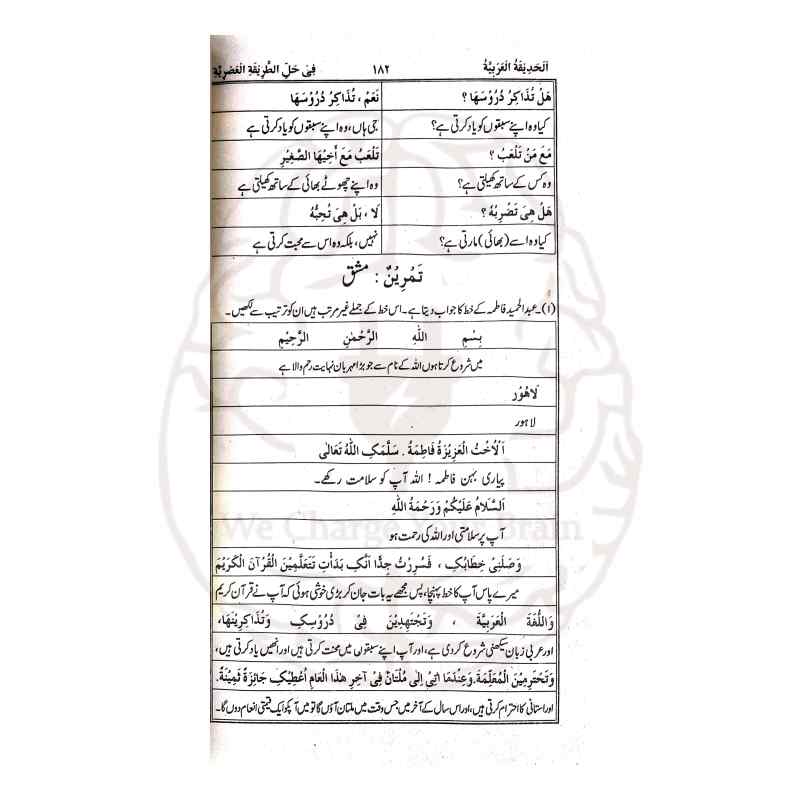 اَلْحَدِيْقَةُ الْعَرَبِيَّةُ ۱۸۲ فِىْ حَلِّ الطَّرِيْقَةِ الْعَصْرِيَّةِ
هَلْ تُذَاكِرُ دُرُوْسَهَا ؟ نَعَمْ ، تُذَاكِرُ دُرُوْسَهَا
کیا وہ اپنے سبقوں کو یاد کرتی ہے؟ جی ہاں، وہ اپنے سبقوں کو یاد کرتی ہے
مَعَ مَنْ تَلْعَبُ ؟ تَلْعَبُ مَعَ أَخِيْهَا الصَّغِيْرِ
وہ کس کے ساتھ کھیلتی ہے؟ وہ اپنے چھوٹے بھائی کے ساتھ کھیلتی ہے
هَلْ هِىَ تَضْرِبُهُ ؟ لَا ، بَلْ هِىَ تُحِبُّهُ
کیا وہ اسے (بھائی) مارتی ہے؟ نہیں، بلکہ وہ اس سے محبت کرتی ہے
تَمْرِيْنٌ : مشق
(۱)۔ عبدالحمید فاطمہ کے خط کا جواب دیتا ہے۔ اس خط کے جملے غیر مرتب ہیں ان کو ترتیب سے لکھیں۔
بِسْمِ اللّٰهِ الرَّحْمٰنِ الرَّحِيْمِ
میں شروع کرتا ہوں اللہ کے نام سے جو بڑا مہربان نہایت رحم والا ہے
لَاهُوْر
لاہور
اَلْأُخْتُ الْعَزِيْزَةُ فَاطِمَةُ . سَلَّمَكِ اللّٰهُ تَعَالٰى
پیاری بہن فاطمہ ! اللہ آپ کو سلامت رکھے۔
اَلسَّلَامُ عَلَيْكُمْ وَرَحْمَةُ اللّٰهِ
آپ پر سلامتی اور اللہ کی رحمت ہو
وَصَلَنِىْ خِطَابُكِ ، فَسُرِرْتُ جِدًّا أَنَّكِ بَدَأْتِ تَتَعَلَّمِيْنَ الْقُرْآنَ الْكَرِيْمَ
میرے پاس آپ کا خط پہنچا، پس مجھے یہ بات جان کر بڑی خوشی ہوئی کہ آپ نے قرآن کریم
وَاللُّغَةَ الْعَرَبِيَّةَ ، وَتَجْتَهِدِيْنَ فِىْ دُرُوْسِكِ وَتُذَاكِرِيْنَهَا،
اور عربی زبان سیکھنی شروع کر دی ہے، اور آپ اپنے سبقوں میں محنت کرتی ہیں اور انھیں یاد کرتی ہیں،
وَتَحْتَرِمِيْنَ الْمُعَلِّمَةَ. وَعِنْدَمَا آتِىْ إِلٰى مُلْتَانَ فِىْ آخِرِ هٰذَا الْعَامِ أُعْطِيْكِ جَائِزَةً ثَمِيْنَةً.
اور استانی کا احترام کرتی ہیں، اور اس سال کے آخر میں جس وقت میں ملتان آؤں گا تو میں آپ کو ایک قیمتی انعام دوں گا۔
We Charge Your Brain